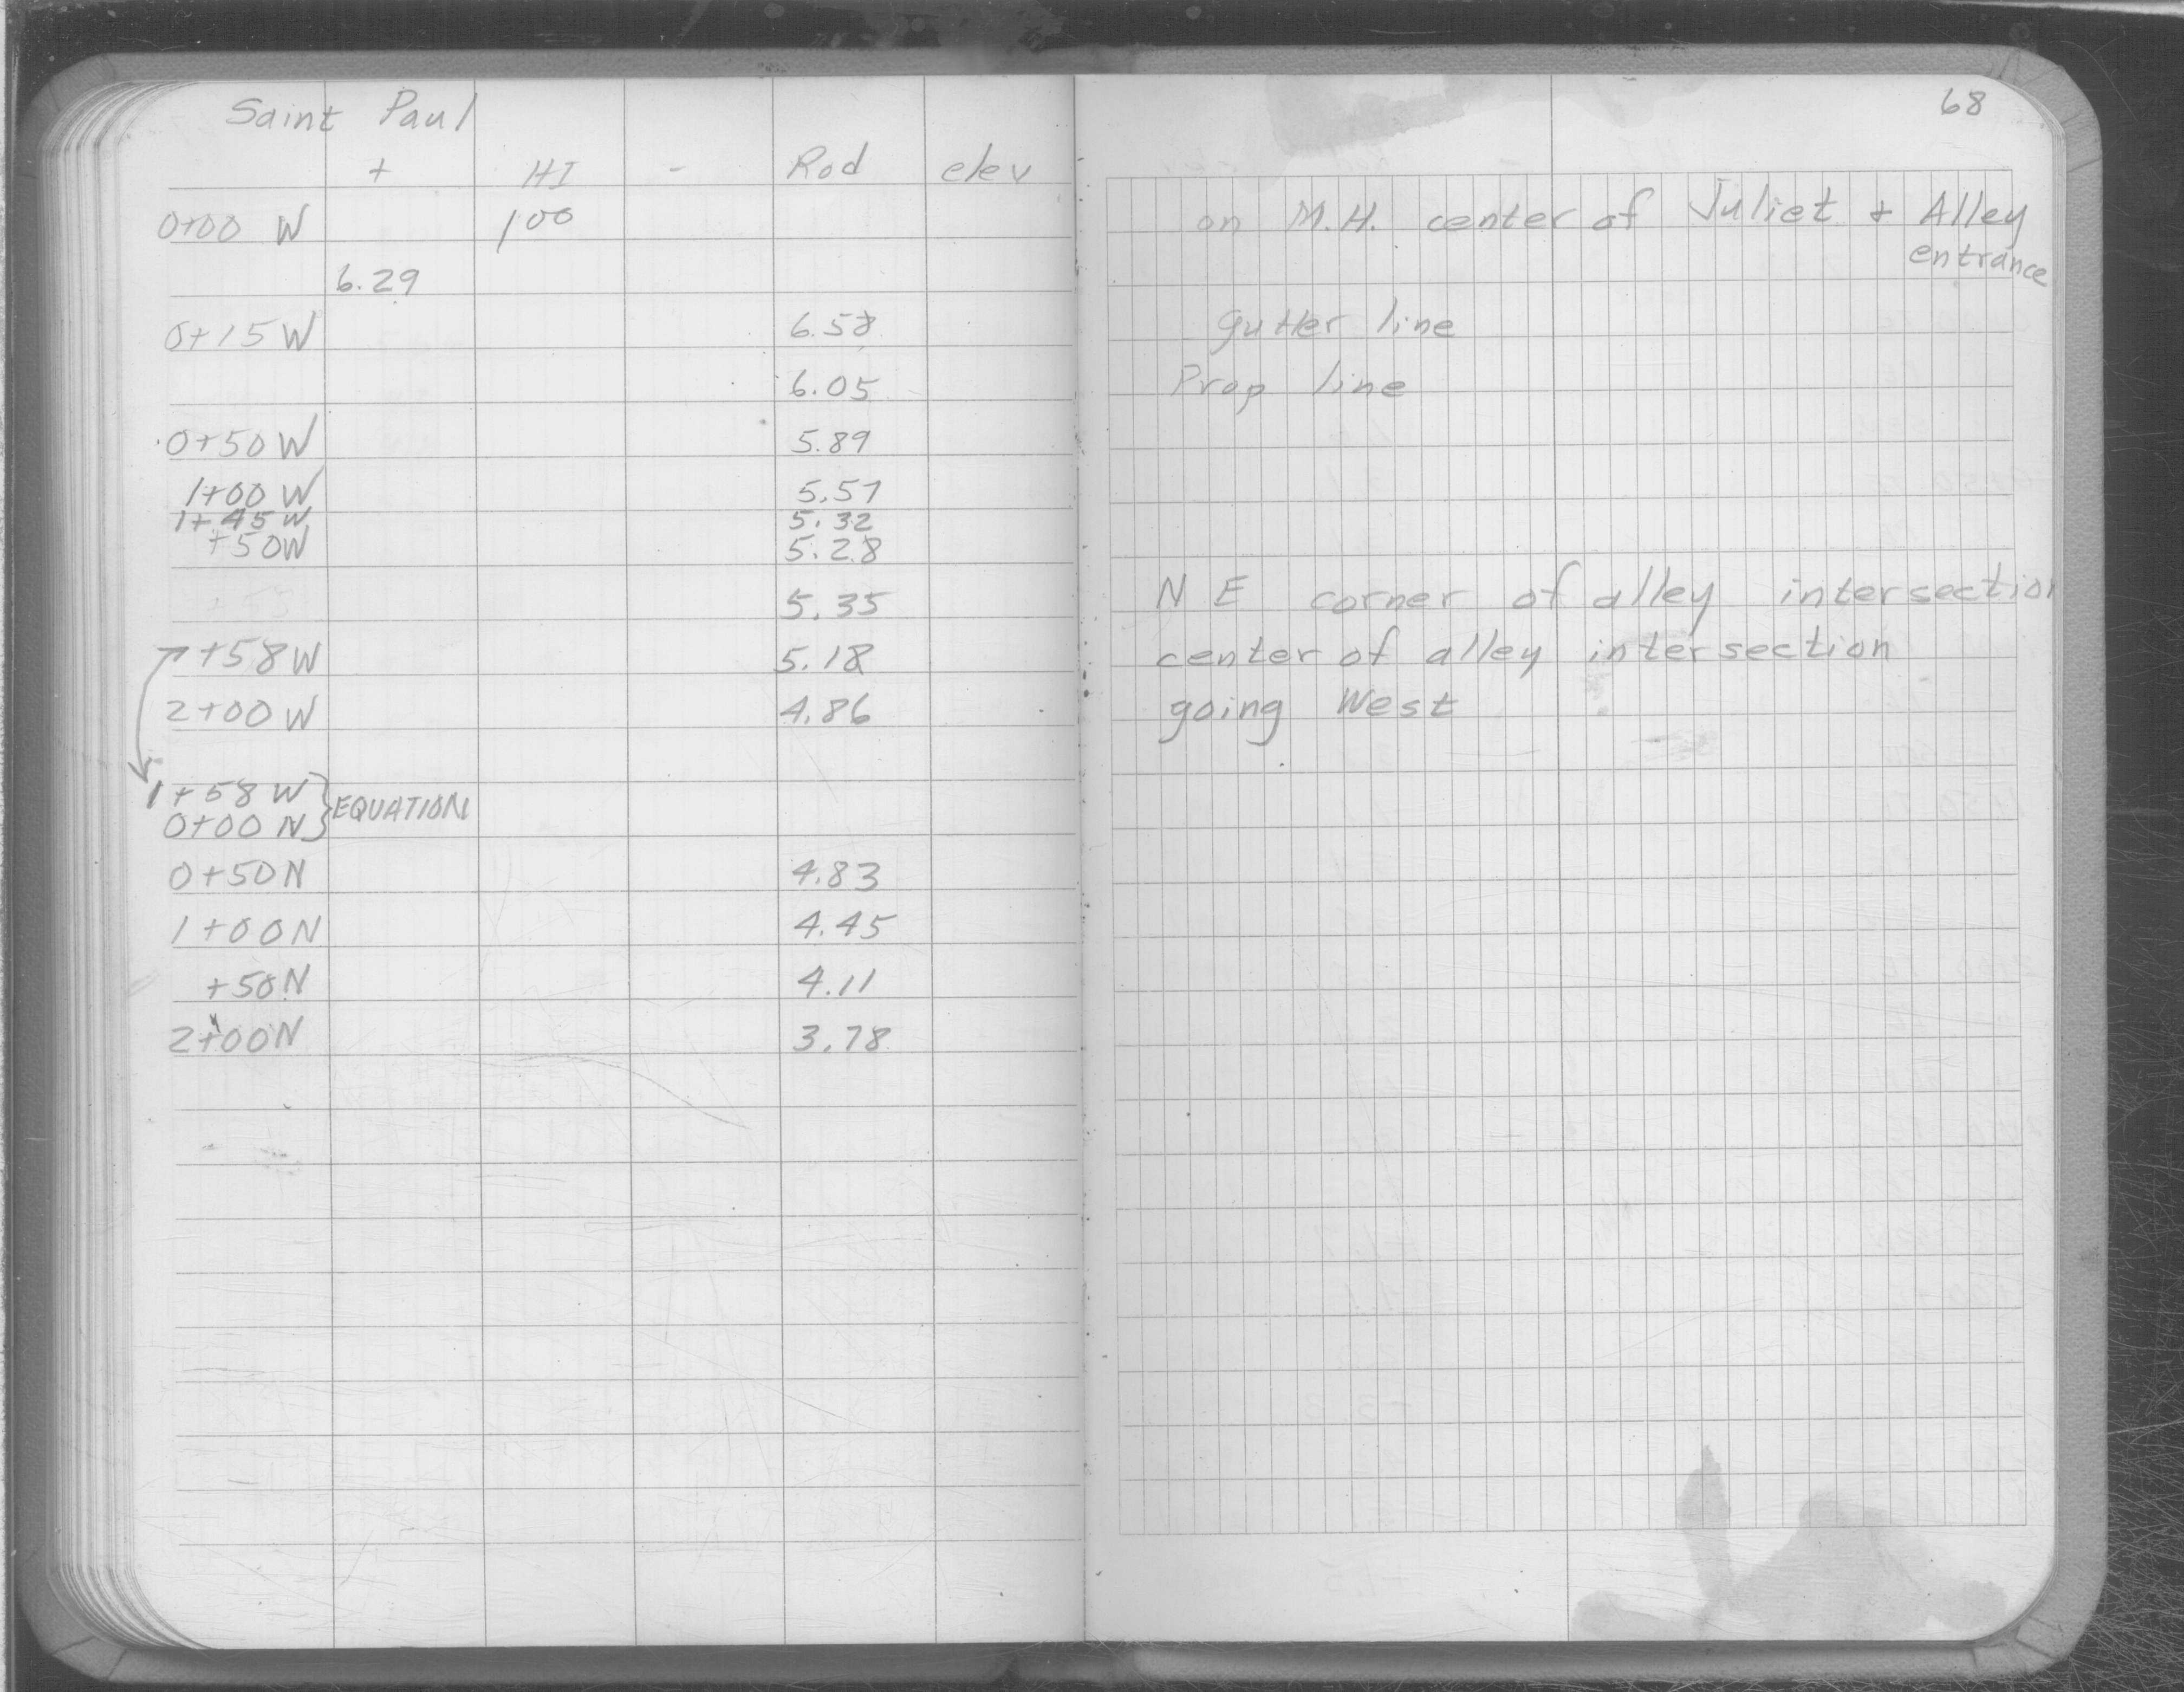 Saint Paul
68
+ HI - Rod elev
0+00 W 100 on M.H. center of Juliet & Alley
entrance
6.29
0+15 W 6.58 gutter line
6.05 Prop line
0+50 W 5.89
1+00 W 5.57
1+45 W 5.32
+50W 5.28
5.35 N E corner of alley intersection
+58W 5.18 center of alley intersection
2+00 W 4.86 going West
1+58 W
0+00 N } EQUATION
0+50N 4.83
1+00N 4.45
+50N 4.11
2+00N 3.78